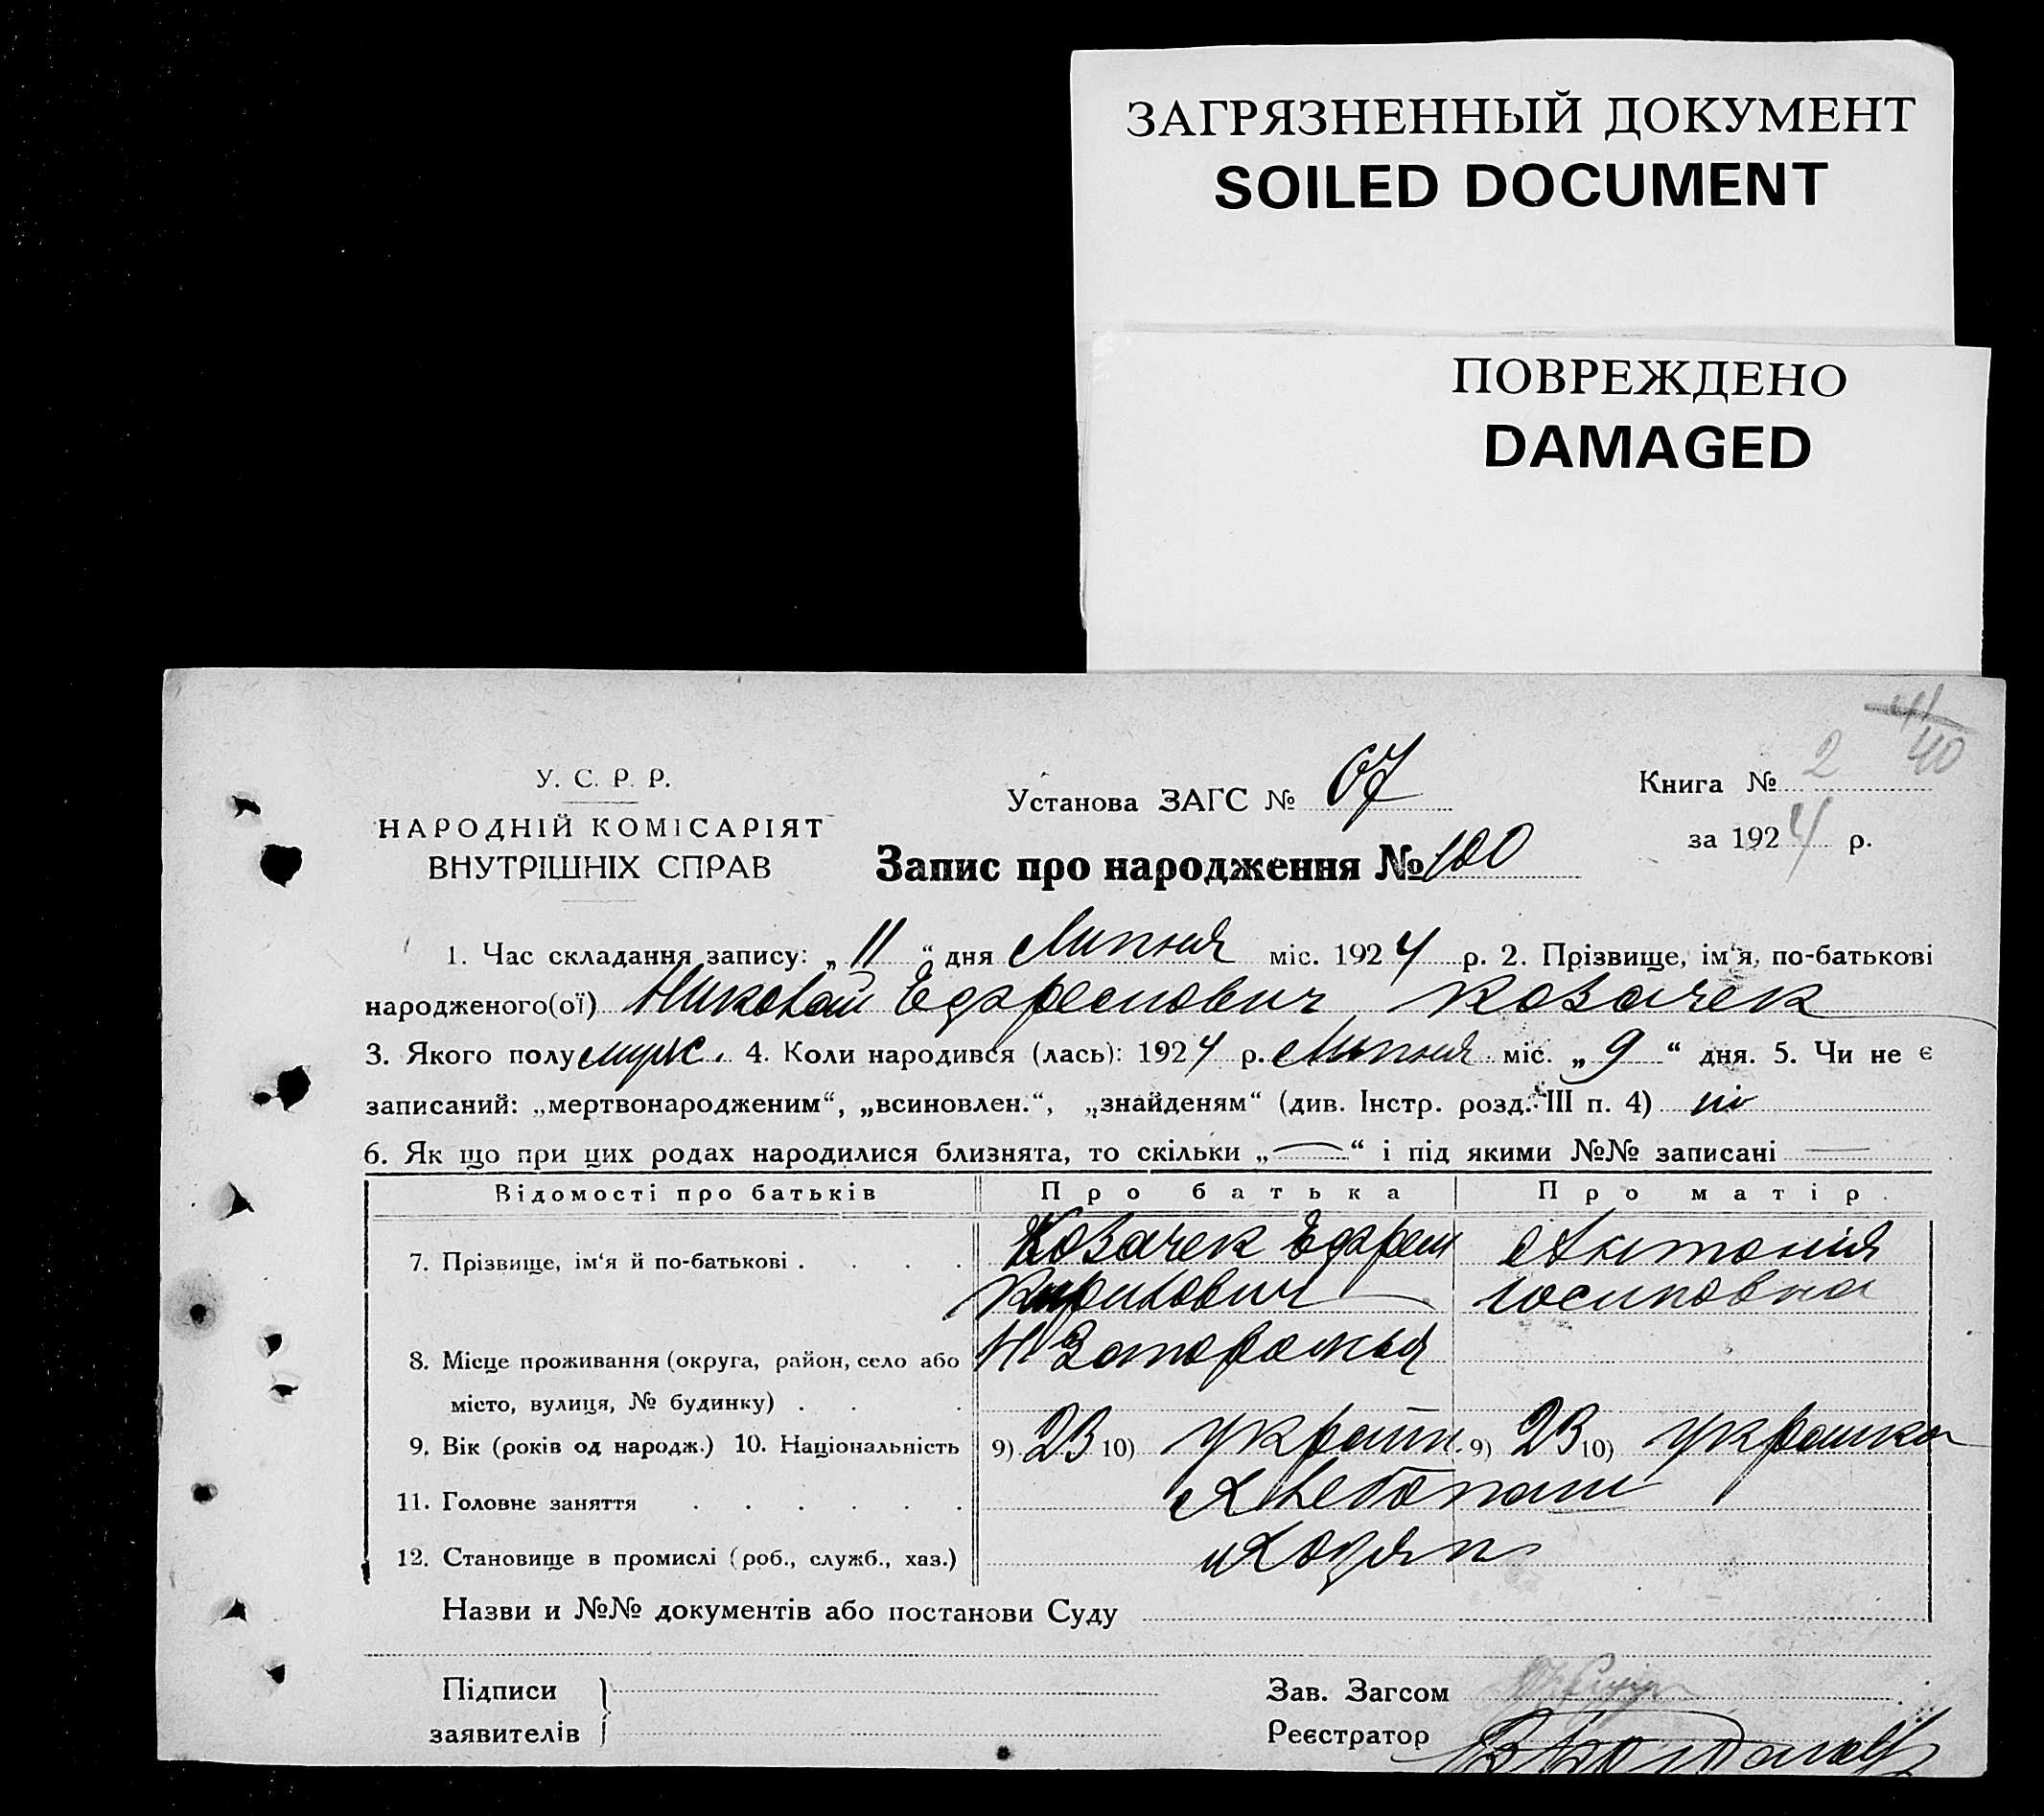 ЗАГРЯЗНЕННЫЙ ДОКУМЕНТ
SOILED DOCUMENT
ПОВРЕЖДЕНО
DAMAGED
41
40
У. С. Р. Р.
НАРОДНІЙ КОМІСАРІЯТ
ВНУТРІШНІХ СПРАВ
Установа ЗАГС № 67
Запис про народження № 100
Книга № 2
за 1924 р.
1. Час складання запису: „11“ дня Липня міс. 1924 р. 2. Прізвище, ім'я, по-батькові
народженого(ої) Николай Ефремович Козачек
3. Якого полу муж. 4. Коли народився (лась): 1924 р. Липня міс. „9“ дня. 5. Чи не є
записаний: „мертвонародженим“, „всиновлен.“, „знайденям“ (див. Інстр. розд. III п. 4) ні
6. Як що при цих родах народилися близнята, то скільки „—“ і під якими №№ записані —
Відомості про батьків Про батька Про матір
7. Прізвище, ім'я й по-батькові . . . . Козачек Ефрем Антонія
Кирилович Іосиповна
8. Місце проживання (округа, район, село або Н Запорожья
місто, вулиця, № будинку) . . .
9. Вік (років од народж.) 10. Національність 9) 23 10) україн. 9) 23 10) українка
11. Головне заняття . . . . . . Хлебопаш
12. Становище в промислі (роб., служб., хаз.) Хозяин
Назви и №№ документів або постанови Суду
Підписи
заявителів
Зав. Загсом
Реєстратор